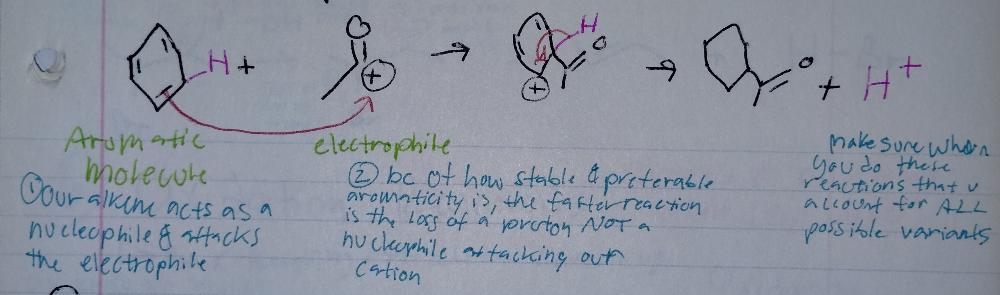 H + O + → H O + → O + H+
Aromatic
molecule
electrophile
① our alkene acts as a
nucleophile & attacks
the electrophile
② bc of how stable & preferable
aromaticity is, the faster reaction
is the loss of a proton NOT a
nucleophile attacking our
cation
make sure when
you do these
reactions that u
account for ALL
possible variants